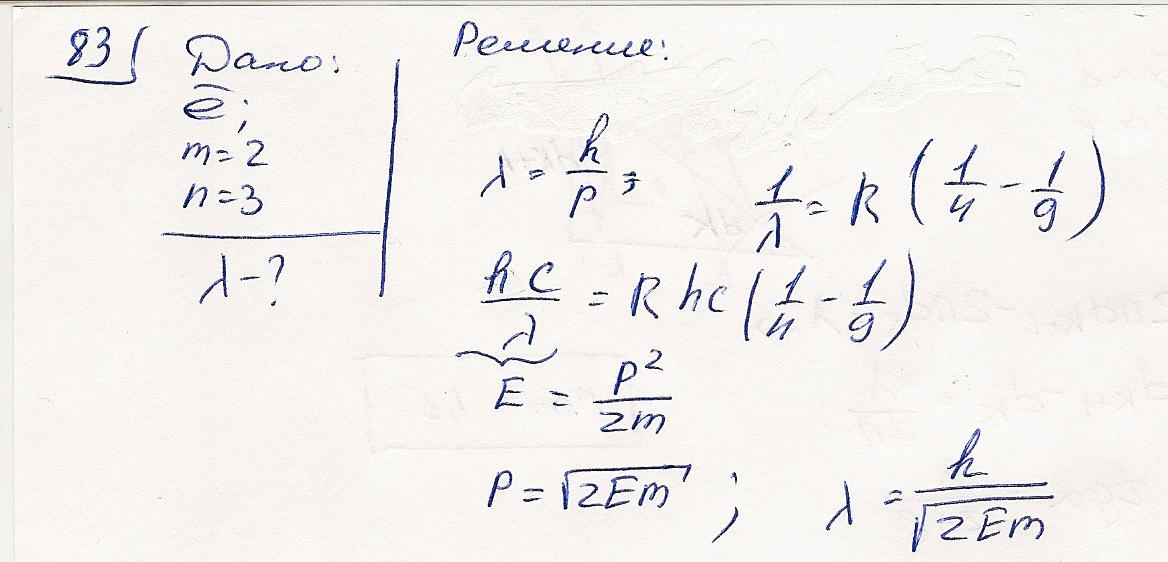 83 Дано:
ē;
m=2
n=3
λ-?
Решение:
λ = h/p ;
1/λ = R (1/4 - 1/9)
hc/λ = R hc (1/4 - 1/9)
E = p²/2m
P = √2Em ; λ = h/√2Em